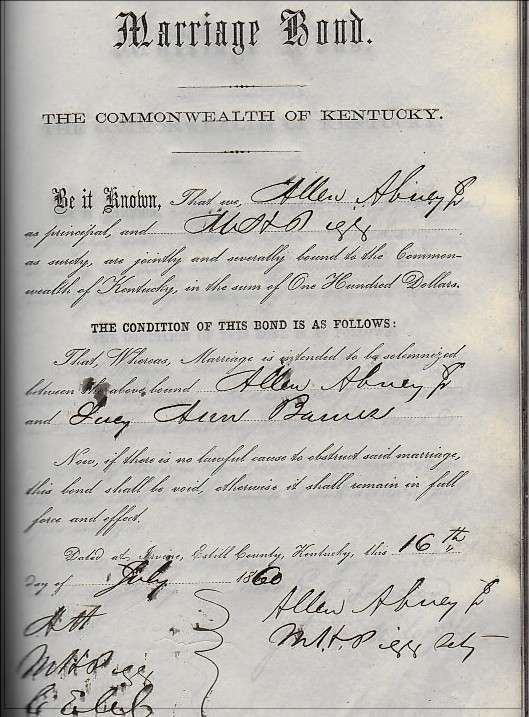 Marriage Bond.
THE COMMONWEALTH OF KENTUCKY.
Be it Known, That we, Allen Abney Jr
as principal, and M H Pigg
as surety, are jointly and severally bound to the Common-
wealth of Kentucky, in the sum of One Hundred Dollars.
THE CONDITION OF THIS BOND IS AS FOLLOWS:
That, Whereas, Marriage is intended to be solemnized
between the above bound Allen Abney Jr
and Lucy Ann Barnes
Now, if there is no lawful cause to obstruct said marriage,
this bond shall be void, otherwise it shall remain in full
force and effect.
Dated at Irvine, Estill County, Kentucky, this 16th
day of July 1860
Allen Abney Jr
Att
M H Pigg
M H Pigg